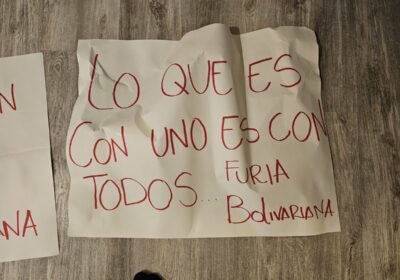 LO QUE ES
CON UNO ES CON
TODOS... FURIA
BOLIVARIANA
N
ANA